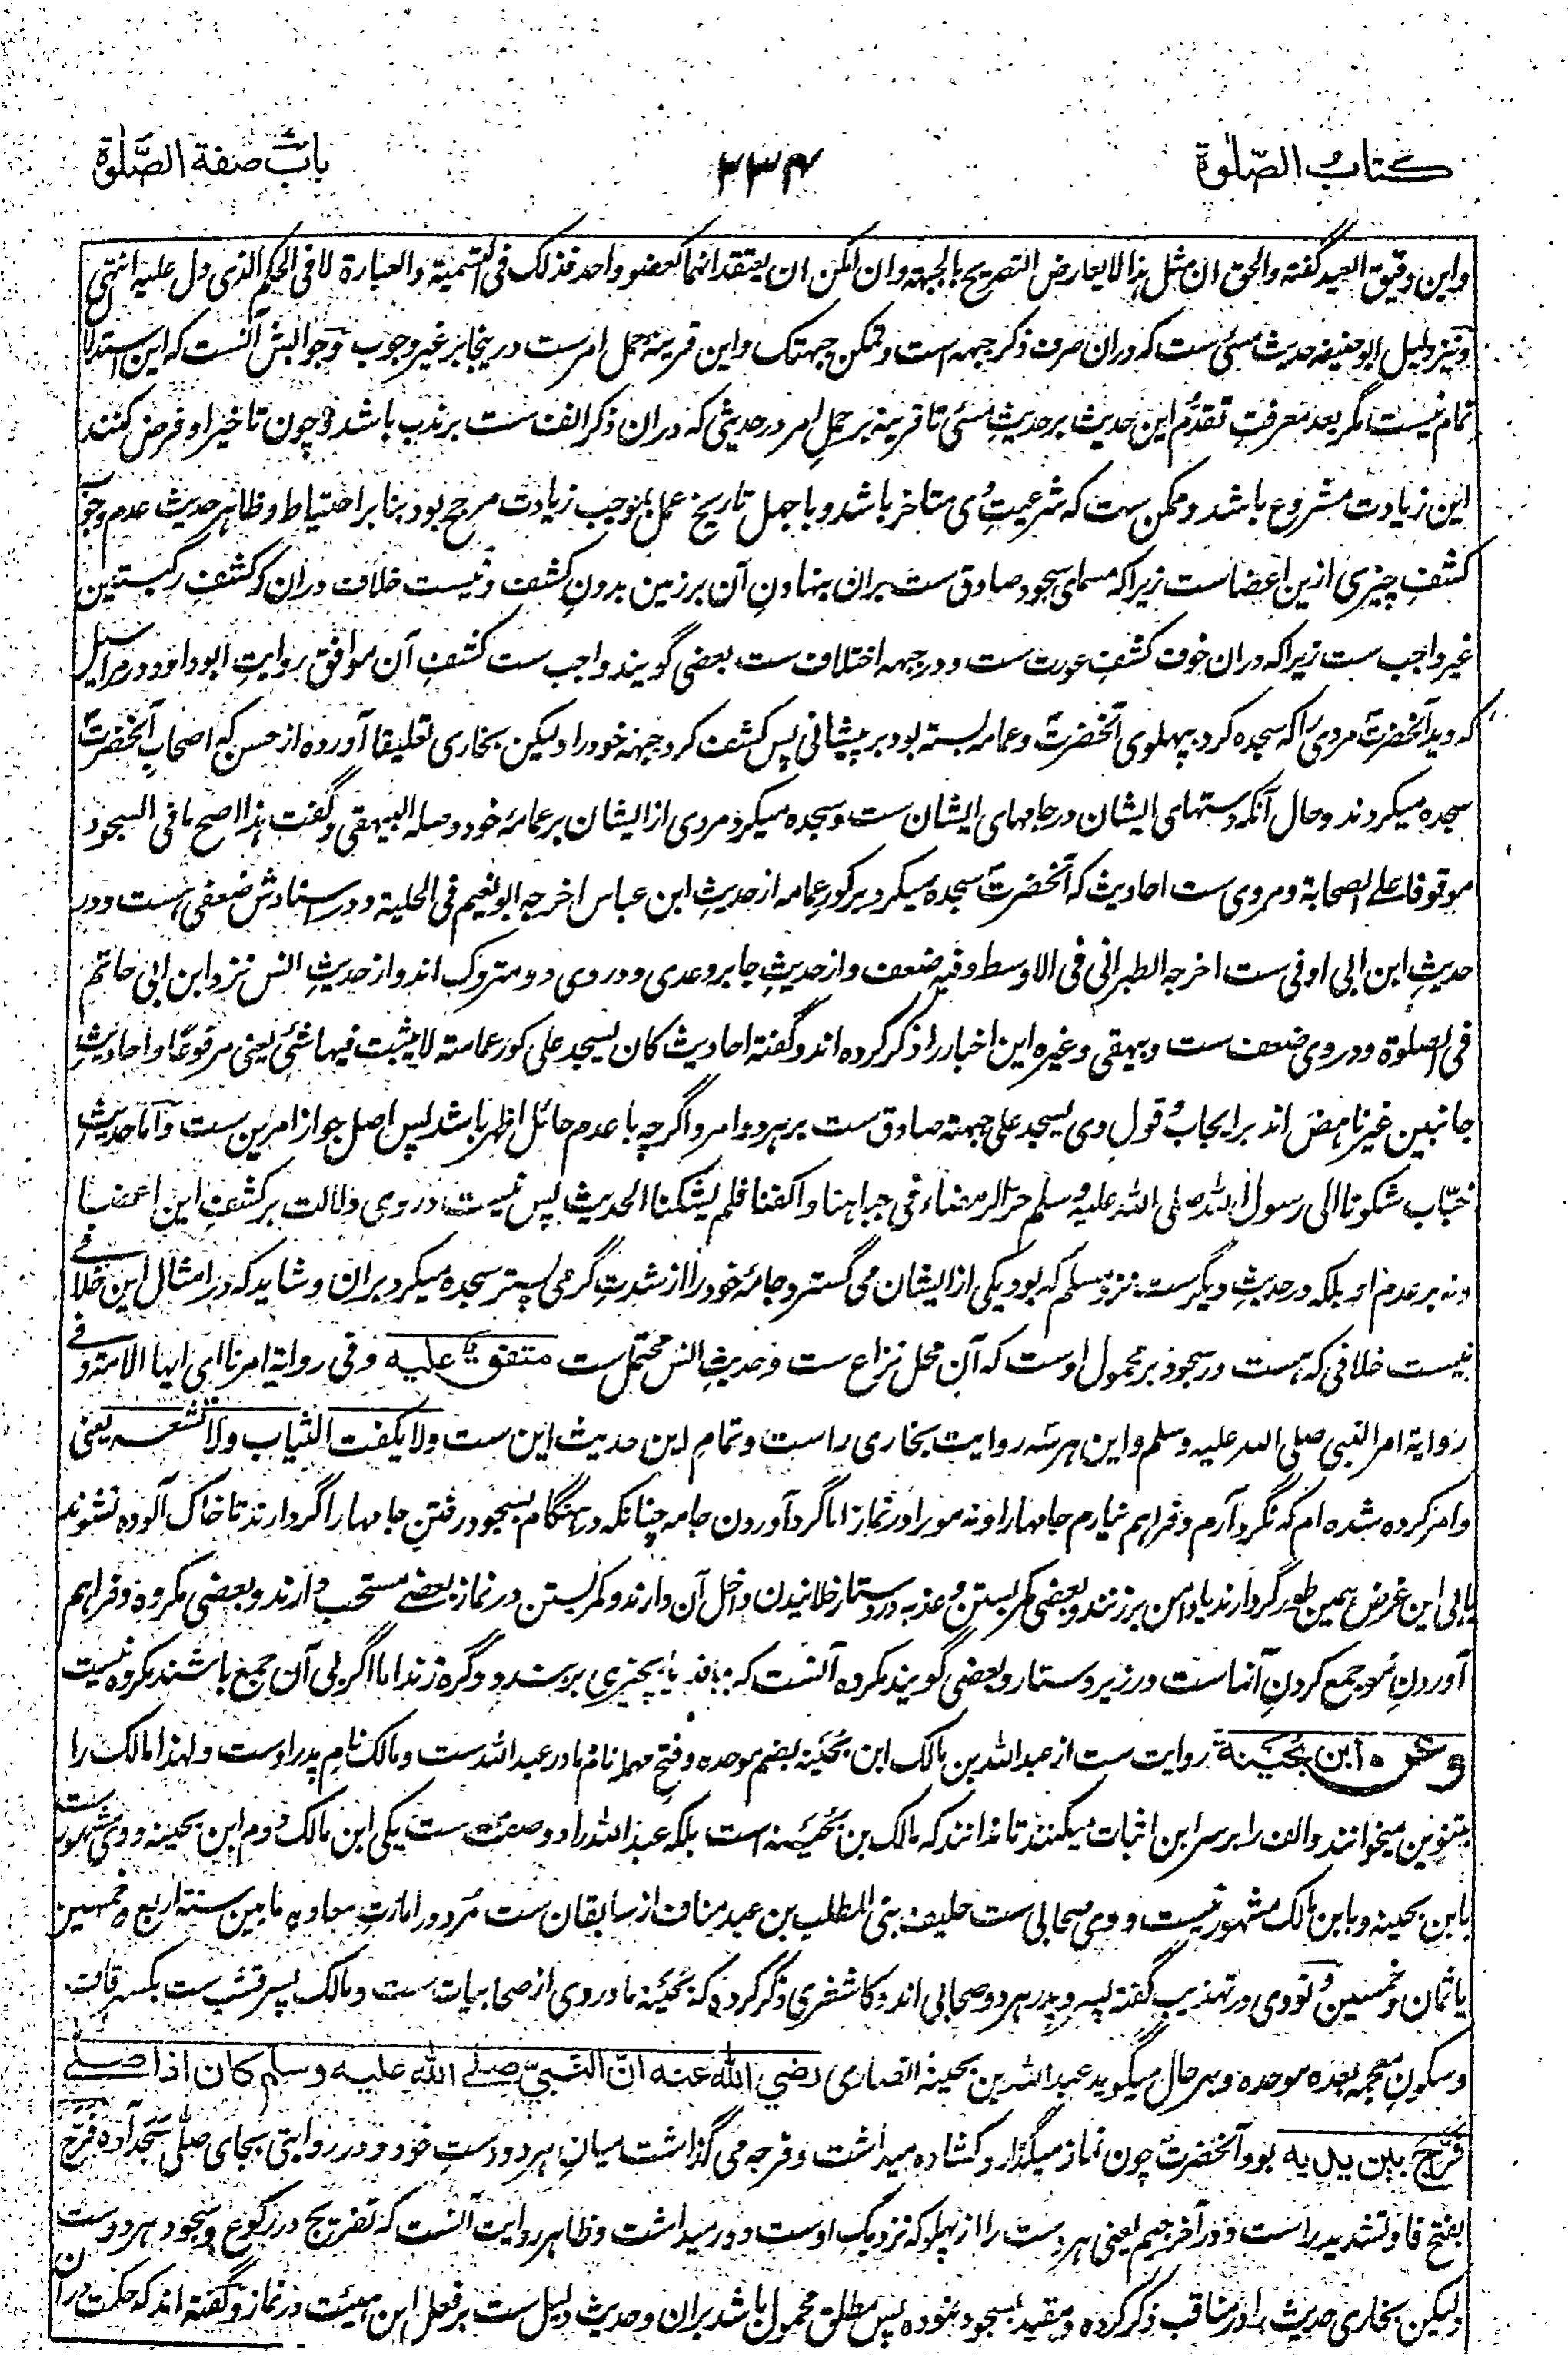 کتاب الصّلوة
۲۳۴
باب صفة الصَّلوة
و ابن دقیق العید گفته والحق ان مثل هذا لا یعارض التصریح بالجبهة وان امکن ان یعتقد انهما کعضو واحد فذلک فی التسمیة والعبارة لا فی الحکم الذی دل علیه انتهی
و نیز دلیل ابوحنیفه حدیث مسئی ست که دران صرف ذکر جبهه است و تمکن جبهتک و این قرینهٔ حمل امرست درینجا بر غیر وجوب و جوابش آنست که این استدلال
تمام نیست مگر بعد معرفت تقدُّم این حدیث بر حدیثِ مسئی تا قرینه بر حملِ امر در حدیثی که دران ذکر الف ست بر ندب باشد و چون تاخیر او فرض کنند
این زیادت مشروع باشد و ممکن ست که شرعیتِ وی متاخر باشد و با جهل تاریخ عمل بموجب زیادت مرجح بود بنا بر احتیاط و ظاهر حدیث عدم وجوب
کشفِ چیزی ازین اعضاست زیرا که مسمای سجود صادق ست بران بنهادنِ آن بر زمین بدونِ کشف و نیست خلاف دران که کشفِ رکبتین
غیر واجب ست زیرا که دران خوف کشفِ عورت ست و در جبهه اختلاف ست بعضی گویند واجب ست کشفِ آن موافق روایتِ ابوداود در مراسیل
که دید آنحضرت مردی را که سجده کرد بپهلوی آنحضرت و عمامه بسته بود بر پیشانی پس کشف کرد جبههٔ خود را و لیکن بخاری تعلیقا آورده از حسن که اصحابِ آنحضرت
سجده میکردند و حال آنکه دستهای ایشان در جامهای ایشان ست و سجده میکرد مردی از ایشان بر عمامهٔ خود وصله البیهقی و گفت هذا اصح ما فی السجود
موقوفا علی الصحابة و مروی ست احادیث که آنحضرت سجده میکرد بر کورِ عمامه از حدیثِ ابن عباس اخرجه ابو نعیم فی الحلیة و در اسنادش ضعفی هست و در
حدیثِ ابن ابی اوفی ست اخرجه الطبرانی فی الاوسط و فیه ضعف و از حدیثِ جابر و عدی و در وی دو متروک اند و از حدیثِ انس نزد ابن ابی حاتم
فی الصلوة و در وی ضعف ست و بیهقی و غیره این اخبار را ذکر کرده اند و گفته احادیث کان یسجد علی کور عمامته لا یثبت فیها شئ یعنی مرفوعًا و احادیثِ
جانبین غیر ناهض اند بر ایجاب و قول وی یسجد علی جبهته صادق ست بر هر دو امر و اگرچه با عدم حائل اظهر باشد پس اصل جواز امرین ست و اما حدیثِ
خبّاب شکونا الی رسول الله صلی الله علیه و سلم حرّ الرمضاء فی جباهنا و اکفنا فلم یشکنا الحدیث پس نیست در وی دلالت بر کشفِ این اعضا
و نه بر عدم او بلکه در حدیثِ دیگرست نزد مسلم که بود یکی از ایشان می گسترد جامهٔ خود را از شدتِ گرمی پستر سجده میکرد بران و شاید که در امثال این خلافی
نیست خلافی که هست در سجود بر محمول اوست که آن محل نزاع ست و حدیثِ انس محتمل ست متفق علیه و فی روایة امرنا ای ایها الامة و فی
روایة امر النبی صلی الله علیه وسلم و این هر سه روایت بخاری راست و تمامِ این حدیث این ست ولا یکفت الثیاب ولا الشعر یعنی
و امر کرده شده ام که نگرد آرم و فراهم نیارم جامها را و نه مو را در نماز اما گرد آوردن جامه چنانکه در هنگام بسجود رفتن جامها را گرد آرند تا خاک آلوده نشوند
یا بی این غرض همین طور گرد آرند یا دامن بر زنند و بعضی کمر بستن و عذبه در دستار خلانیدن داخل آن دارند و کمر بستن در نماز بعضے مستحب دارند و بعضی مکروه و فراهم
آوردنِ مُو جمع کردنِ آنهاست در زیر دستار و بعضی گویند مکروه آنست که ببافد یا بچیزی بربندد و گره زند اما اگر بی آن جمع باشند مکروه نیست
وعن ابن بُحَیْنَة روایت ست از عبدالله بن مالک ابن بُحَیْنه بضم موحده و فتح مهمله نام مادر عبدالله ست و مالک نامِ پدر اوست و لهذا مالک را
بتنوین میخوانند و الف را بر سرِ ابن اثبات میکنند تا ندانند که مالک بن بُحَیْنه است بلکه عبدالله را دو صفت ست یکی ابن مالک دوم ابن بحینه و وی مشهور ست
بابن بحینه و بابن مالک مشهور نیست و وی صحابی ست حلیف بنی المطلب بن عبد مناف از سابقان ست مُرد در امارتِ معاویه ما بین سنة اربع و خمسین
یا ثمان و خمسین و نووی در تهذیب گفته پسر و پدر هر دو صحابی اند و کاشغری ذکر کرده که بُحَیْنه مادر وی از صحابیات ست و مالک پسر قشب ست بکسر قاف
و سکونِ معجمه بعده موحده و بهر حال میگوید عبدالله بن بحینه انصاری رضي الله عنه انّ النبيّ صلے الله علیه وسلم کان اذا صلے
فَرَّجَ بین یدیه بود آنحضرت چون نماز میگذارد کشاده میداشت و فرجه می گذاشت میانِ هر دو دستِ خود و در روایتی بجای صلّی سَجَدَ آمده فَرَّجَ
بفتح فا و تشدید راست و در آخر جیم یعنی هر دست را از پهلو که نزدیکِ اوست دور میداشت و ظاهر روایت آنست که تفریج در رکوع و سجود هر دو ست
و لیکن بخاری حدیث را در مناقب ذکر کرده و مقید بسجود نموده پس مطلق محمول باشد بران و حدیث دلیل ست بر فعل این هیئت در نماز و گفته اند که حکمت دران